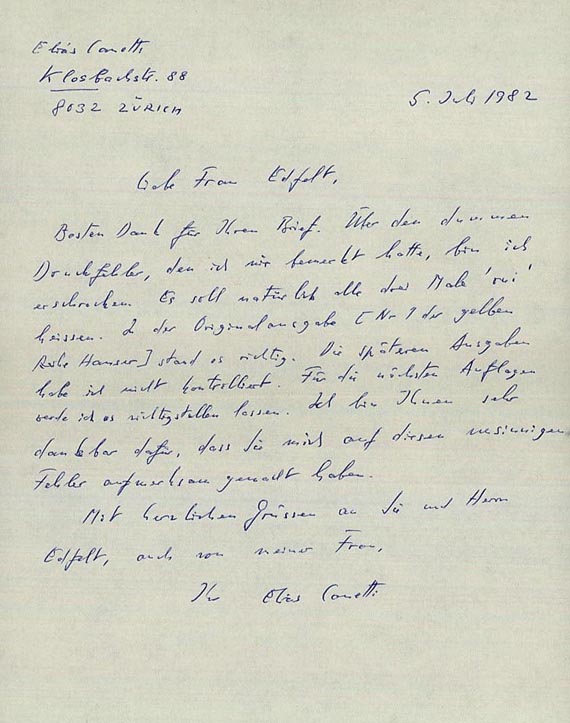 Elias Canetti
Klosbachstr. 88
8032 ZÜRICH
5. Juli 1982
Liebe Frau Edfelt,
Besten Dank für Ihren Brief. Über den dummen
Druckfehler, den ich nie bemerkt hatte, bin ich
erschrocken. Es soll natürlich alle drei Male 'oui'
heissen. In der Originalausgabe [Nr 9 der gelben
Reihe Hanser] stand es richtig. Die späteren Ausgaben
habe ich nicht kontrolliert. Für die nächsten Auflagen
werde ich es richtigstellen lassen. Ich bin Ihnen sehr
dankbar dafür, dass Sie mich auf diesen unsinnigen
Fehler aufmerksam gemacht haben.
Mit herzlichen Grüssen an Sie und Herrn
Edfelt, auch von meiner Frau,
Ihr Elias Canetti